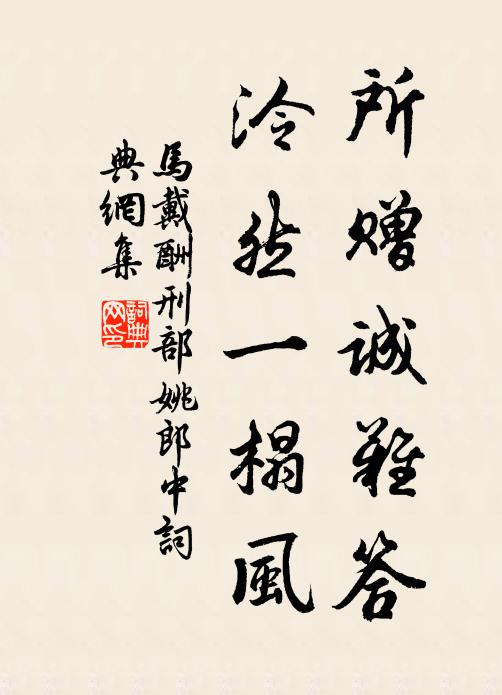 所贈誠難答
泠然一榻風
馬戴酬刑部姚郎中詞
典網集
詞典
网印